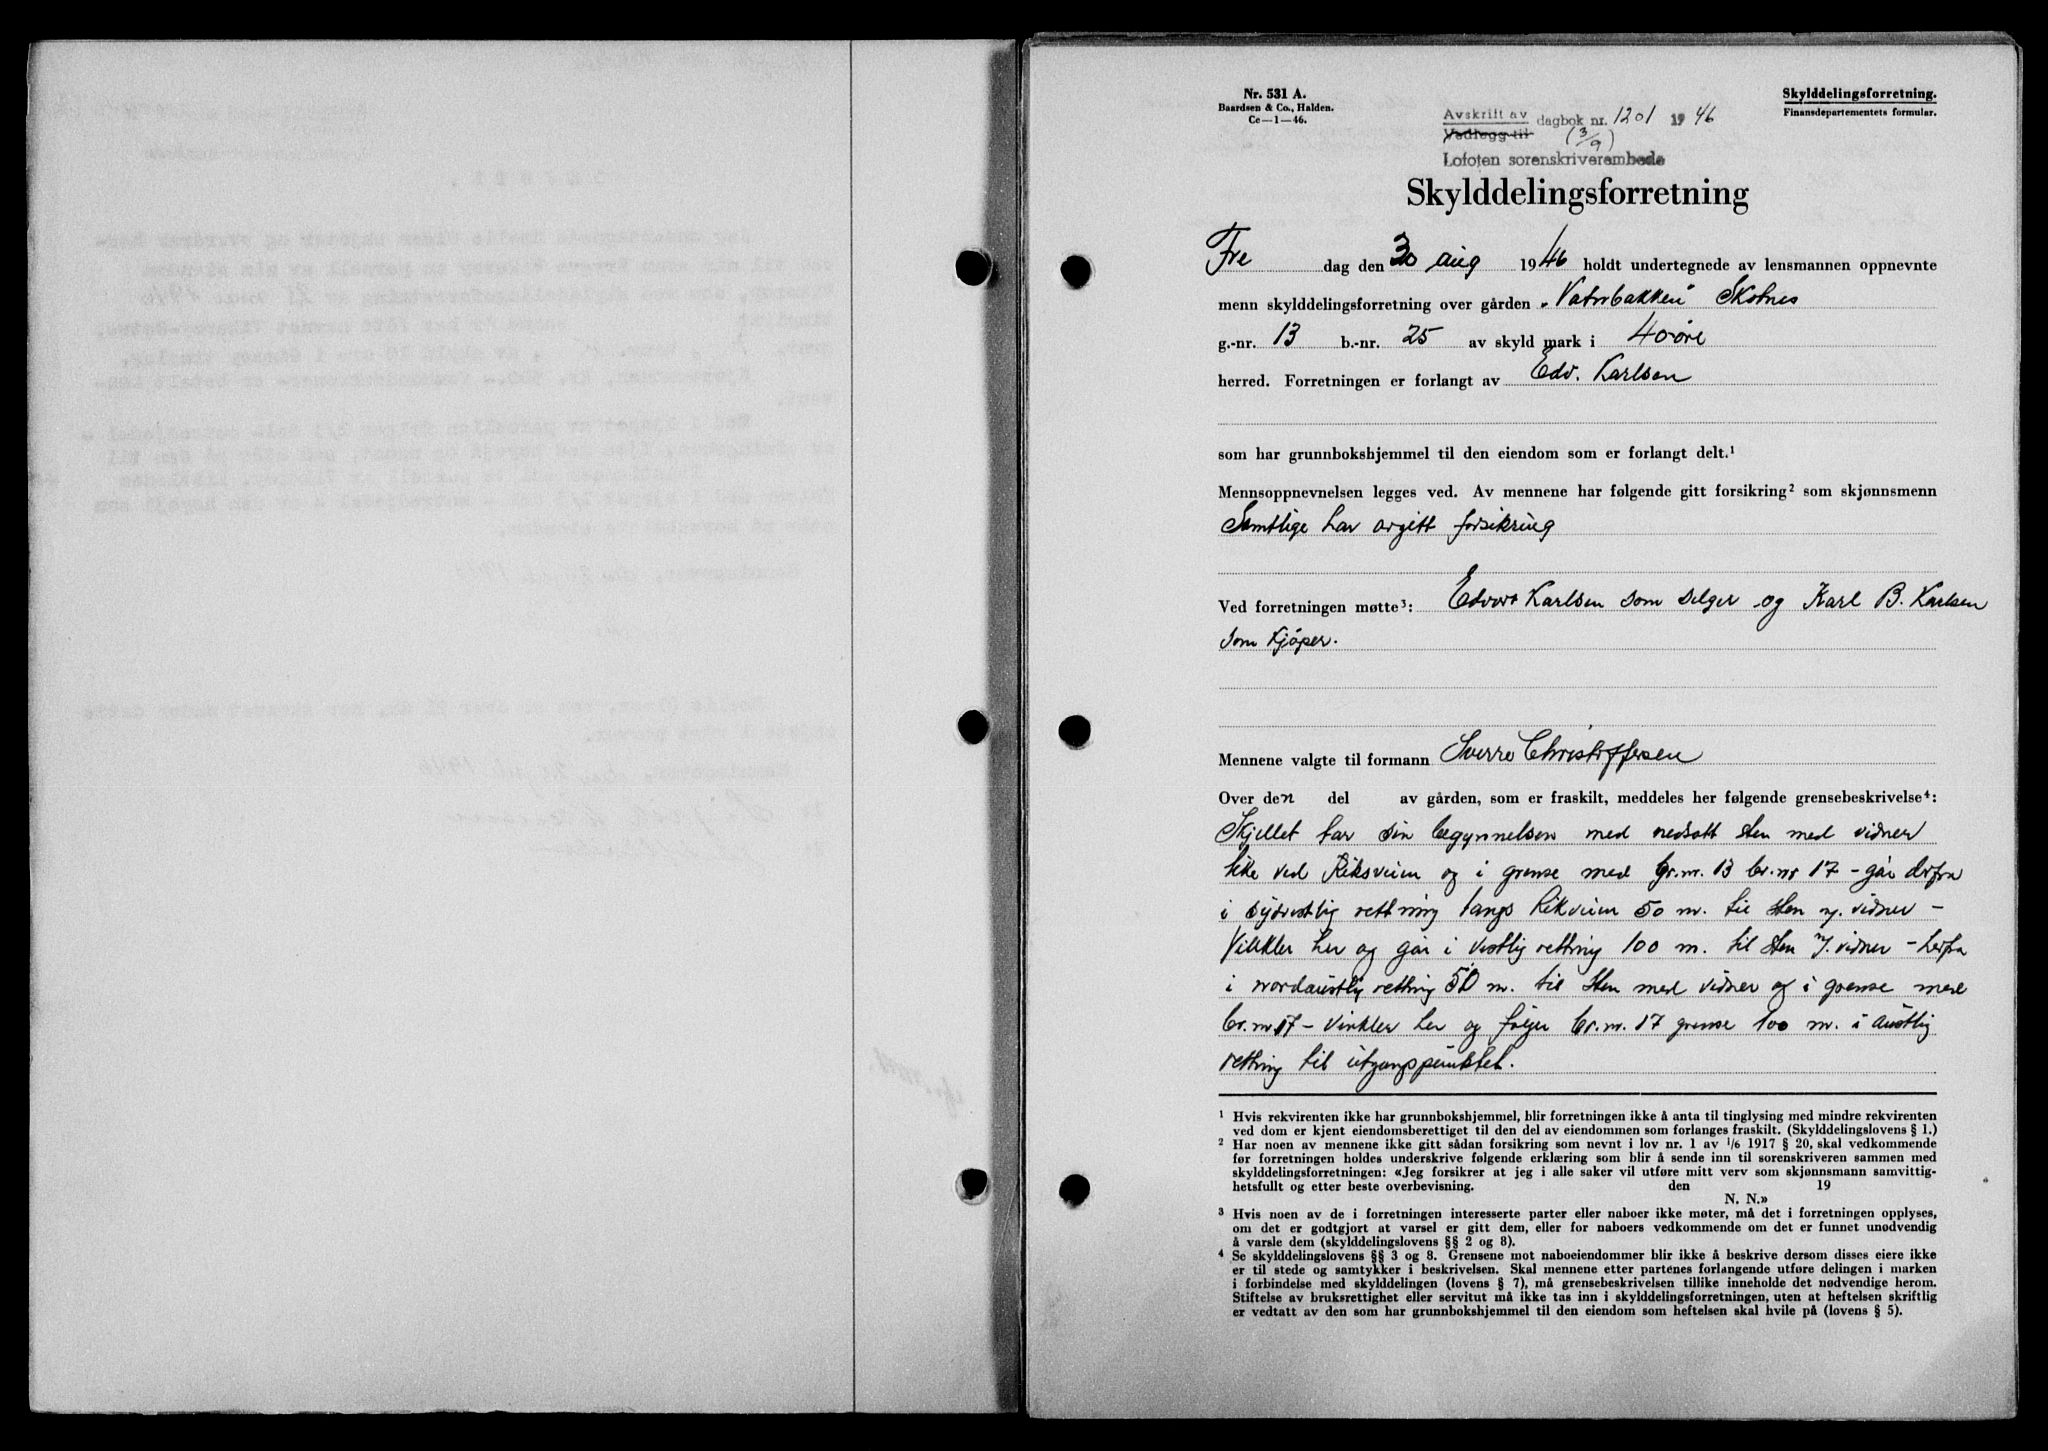 Nr. 531 A.
Baardsen & Co., Halden.
Ce—1—46.
Skylddelingsforretning.
Finansdepartementets formular.
Avskrift av
Vedlegg til
dagbok nr. 1201 1946
(3/9)
Lofoten sorenskriverembede
Skylddelingsforretning
Fre dag den 30 aug 1946 holdt undertegnede av lensmannen oppnevnte
menn skylddelingsforretning over gården „Vatnbakken" Skotnes
g.-nr. 13 b.-nr. 25 av skyld mark i 40 øre
herred. Forretningen er forlangt av Edv. Karlsen
som har grunnbokshjemmel til den eiendom som er forlangt delt.¹
Mennsoppnevnelsen legges ved. Av mennene har følgende gitt forsikring² som skjønnsmenn
Samtlige har avgitt forsikring
Ved forretningen møtte³: Edvart Karlsen som selger og Karl B. Karlsen
som kjøper.
Mennene valgte til formann Sverre Christoffersen
Over den del av gården, som er fraskilt, meddeles her følgende grensebeskrivelse⁴:
Skjellet har sin begynnelsen med nedsatt sten med vidner
like ved Riksveien og i grense med Gr.nr. 13 br.nr 17 – går derfra
i sydvestlig rettning langs Rikveien 50 m. til sten m. vidner –
Vinkler her og går i vestlig rettning 100 m. til sten m. vidner – herfra
i nordaustlig rettning 50 m. til sten med vidner og i grense med
br.nr 17 – vinkler her og følger br.nr. 17 grense 100 m. i austlig
rettning til utgangspunktet.
¹ Hvis rekvirenten ikke har grunnbokshjemmel, blir forretningen ikke å anta til tinglysing med mindre rekvirenten
ved dom er kjent eiendomsberettiget til den del av eiendommen som forlanges fraskilt. (Skylddelingslovens § 1.)
² Har noen av mennene ikke gitt sådan forsikring som nevnt i lov nr. 1 av 1/6 1917 § 20, skal vedkommende
før forretningen holdes underskrive følgende erklæring som blir å sende inn til sorenskriveren sammen med
skylddelingsforretningen: «Jeg forsikrer at jeg i alle saker vil utføre mitt verv som skjønnsmann samvittig-
hetsfullt og etter beste overbevisning. den 19
N. N.»
³ Hvis noen av de i forretningen interesserte parter eller naboer ikke møter, må det i forretningen opplyses,
om det er godtgjort at varsel er gitt dem, eller for naboers vedkommende om det er funnet unødvendig
å varsle dem (skylddelingslovens §§ 2 og 8).
⁴ Se skylddelingslovens §§ 3 og 8. Grensene mot naboeiendommer blir ikke å beskrive dersom disses eiere ikke
er til stede og samtykker i beskrivelsen. Skal mennene etter partenes forlangende utføre delingen i marken
i forbindelse med skylddelingen (lovens § 7), må grensebeskrivelsen tillike inneholde det nødvendige herom.
Stiftelse av bruksrettighet eller servitut må ikke tas inn i skylddelingsforretningen, uten at heftelsen skriftlig
er vedtatt av den som har grunnbokshjemmel til den eiendom som heftelsen skal hvile på (lovens § 5).